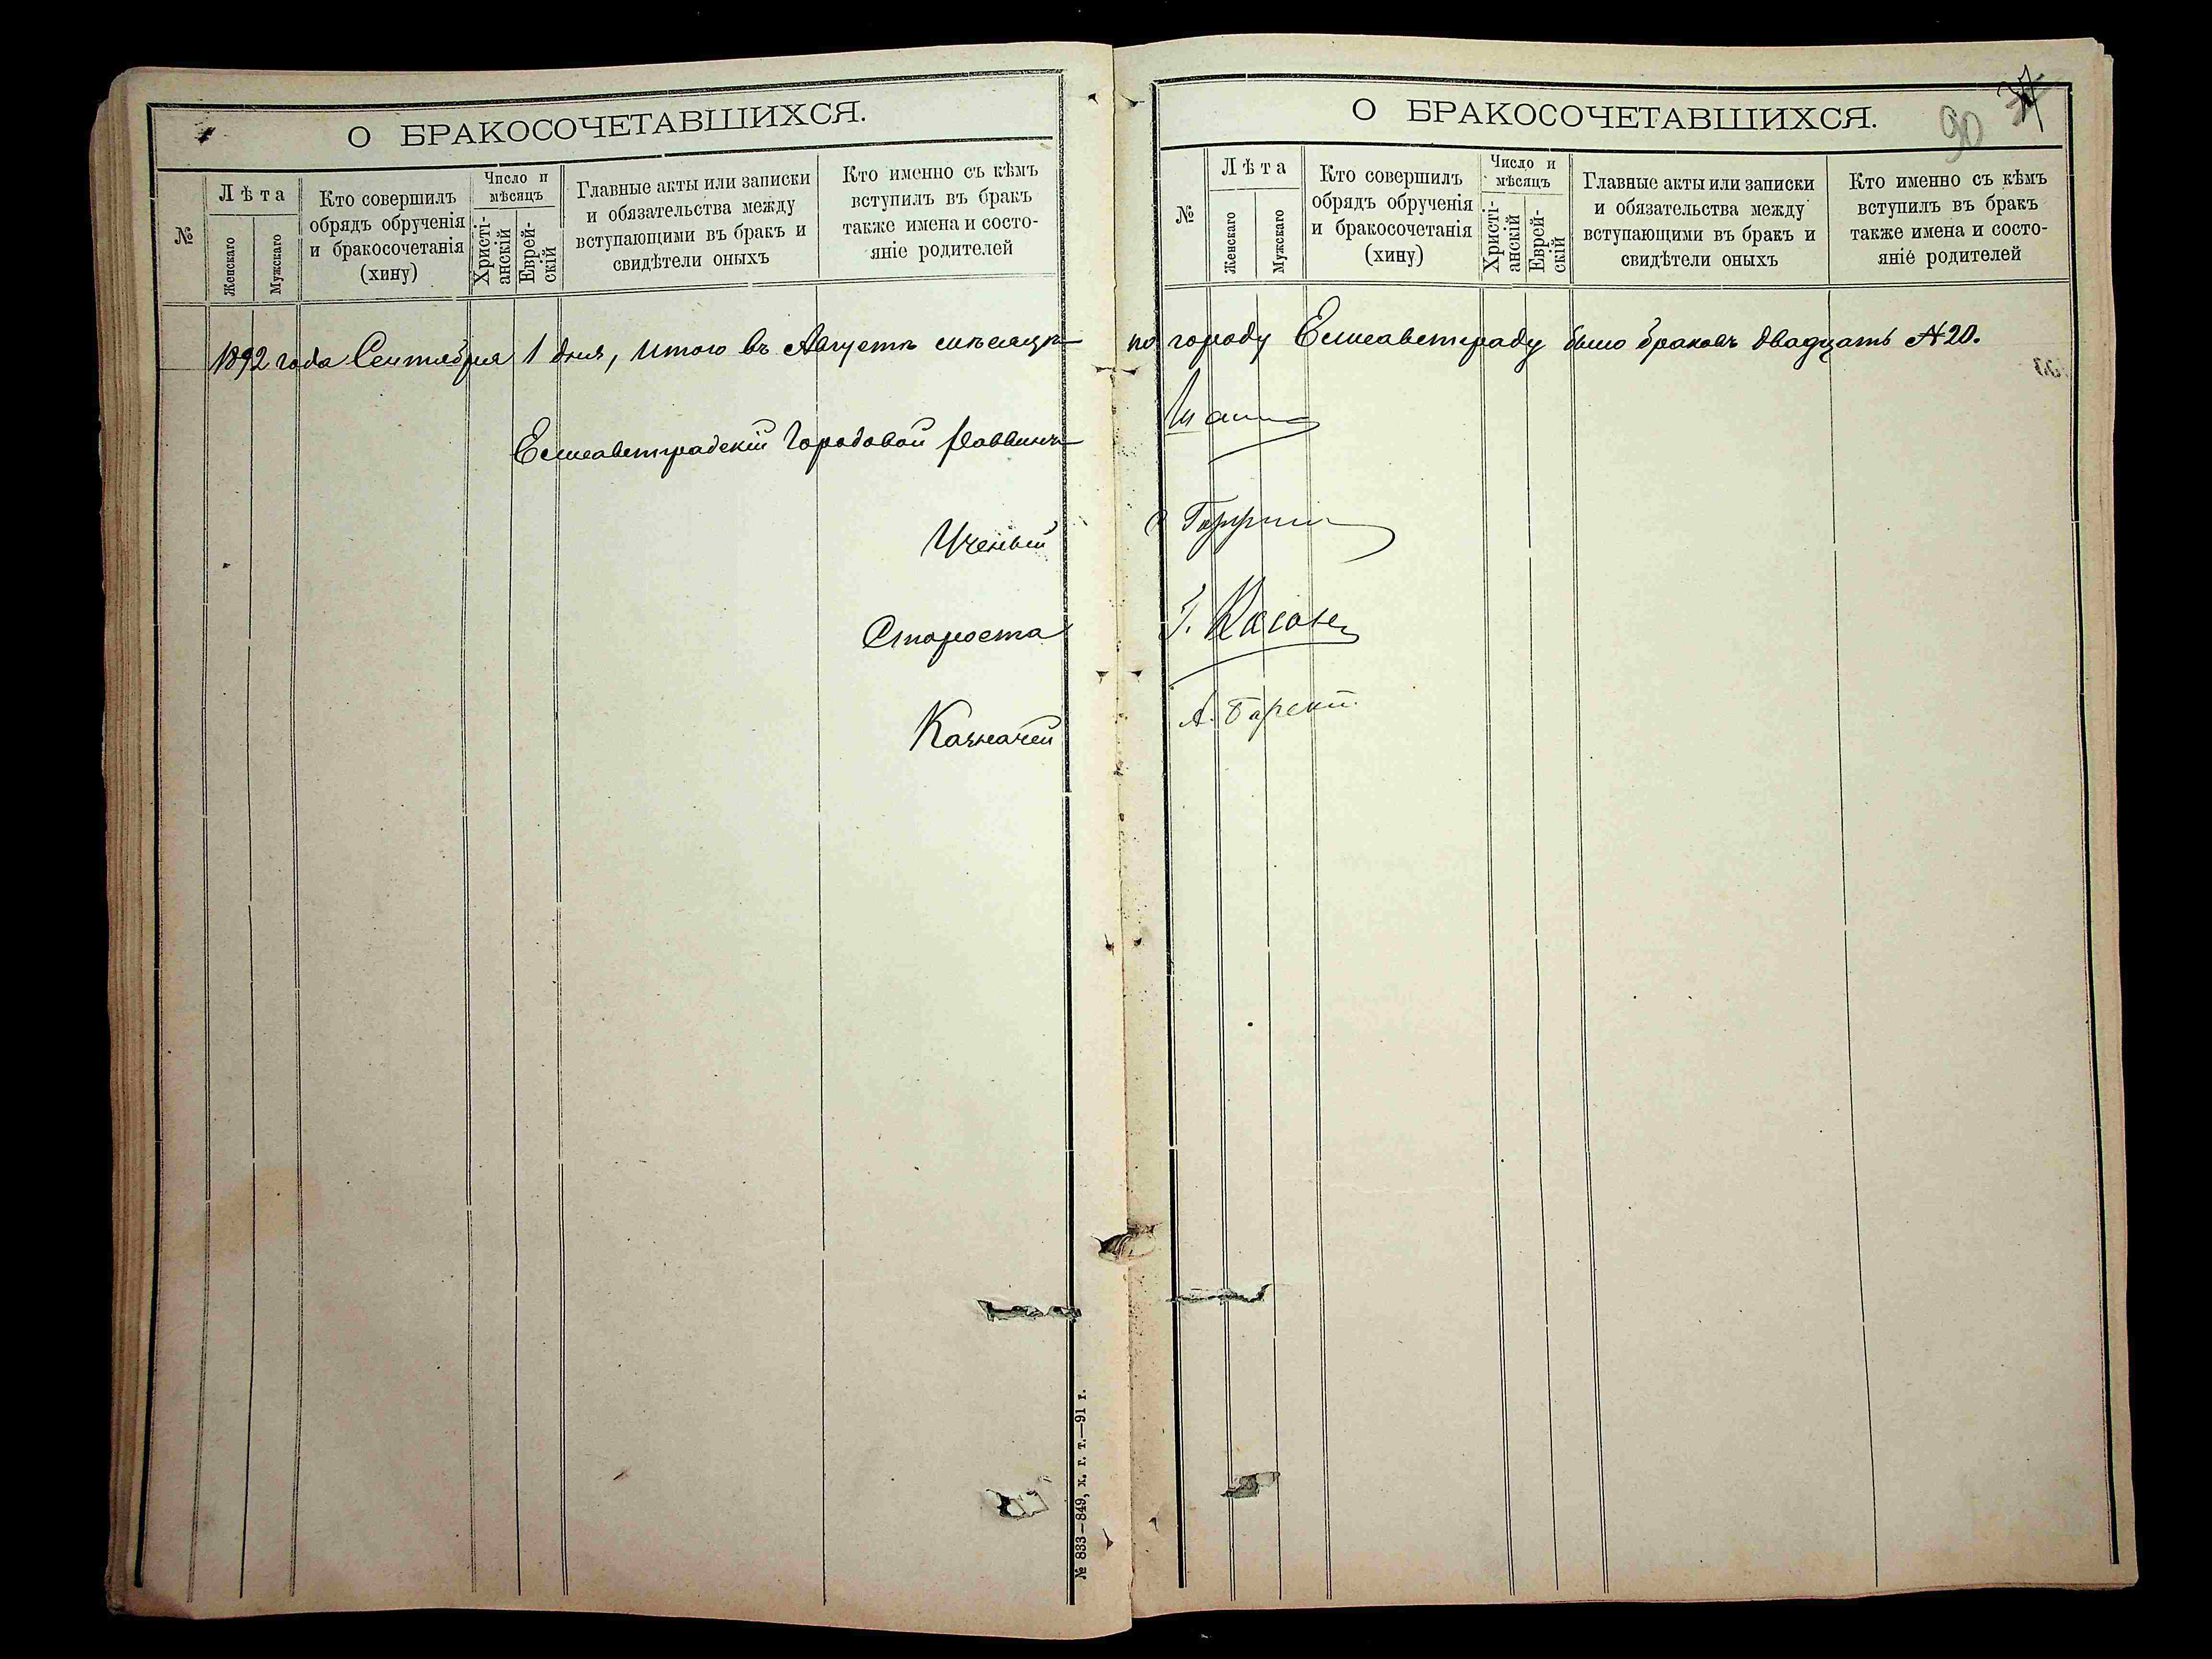 О БРАКОСОЧЕТАВШИХСЯ.
№
Лѣта
Женскаго
Мужскаго
Кто совершилъ
обрядъ обрученія
и бракосочетанія
(хину)
Число и
мѣсяцъ
Христі-
анскій
Еврей-
скій
Главные акты или записки
и обязательства между
вступающими въ бракъ и
свидѣтели оныхъ
Кто именно съ кѣмъ
вступилъ въ бракъ
также имена и состо-
яніе родителей
1892 года Сентября 1 дня, итого въ Августѣ мѣсяцѣ
Елисаветградскій Городовой Раввинъ
Ученый
Староста
Казначей
№ 833–849, х. г. т.—91 г.
О БРАКОСОЧЕТАВШИХСЯ.
90
№
Лѣта
Женскаго
Мужскаго
Кто совершилъ
обрядъ обрученія
и бракосочетанія
(хину)
Число и
мѣсяцъ
Христі-
анскій
Еврей-
скій
Главные акты или записки
и обязательства между
вступающими въ бракъ и
свидѣтели оныхъ
Кто именно съ кѣмъ
вступилъ въ бракъ
также имена и состо-
яніе родителей
по городу Елисаветграду было браковъ двадцать №20.
А. Барскій